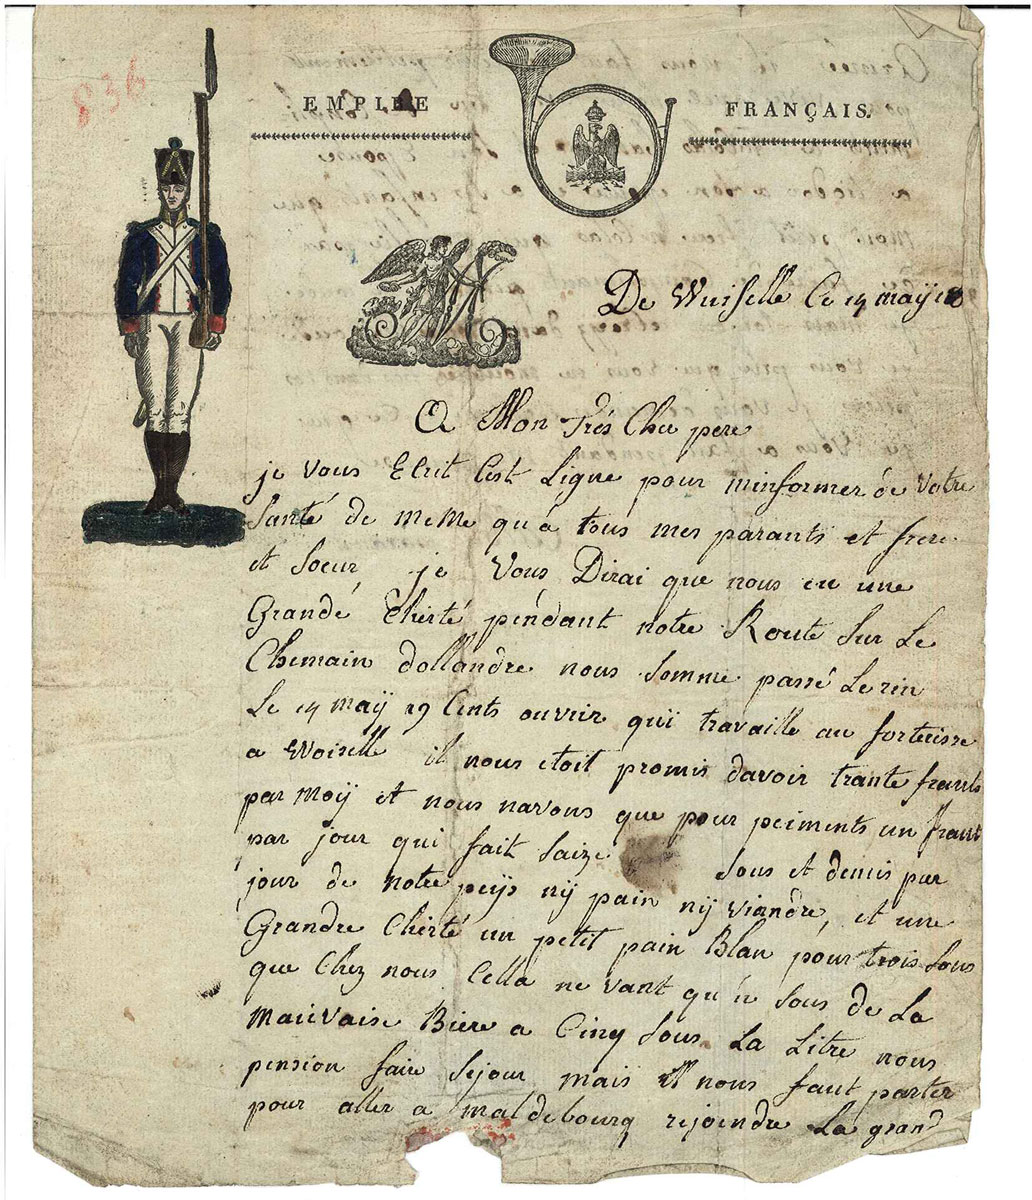 836
EMPIRE FRANÇAIS.
De Wuiselle Ce 14 maÿ
A Mon trés Cher pere
je vous Ecrit Cest Ligne pour minformer de Votre
Santé de meme qu'a tous mes parants et frere
et Soeur, je Vous Dirai que nous eu une
Grandé Cherté péndant notre Route Sur Le
Chemain dollandre nous Somme passé Le rin
Le 14 maÿ 19 Cents ouvrir quÿ travaille au forteresse
a Woiselle il nous etoit promis davoir trante frants
par moÿ et nous navons que pour peiments un frant
par jour qui fait Saize Sous et demis par
jour de notre peÿs nÿ pain nÿ viandre, et une
Grandre Cherté un petit pain Blan pour trois Sous
que Chez nous Cella ne vant qu'n Sous de La
Mauvaise Biere a Cinq Sous La Litre nous
pension faire Sejour mais il nous faut parter
pour aller a maldebourg rejoindre La grand